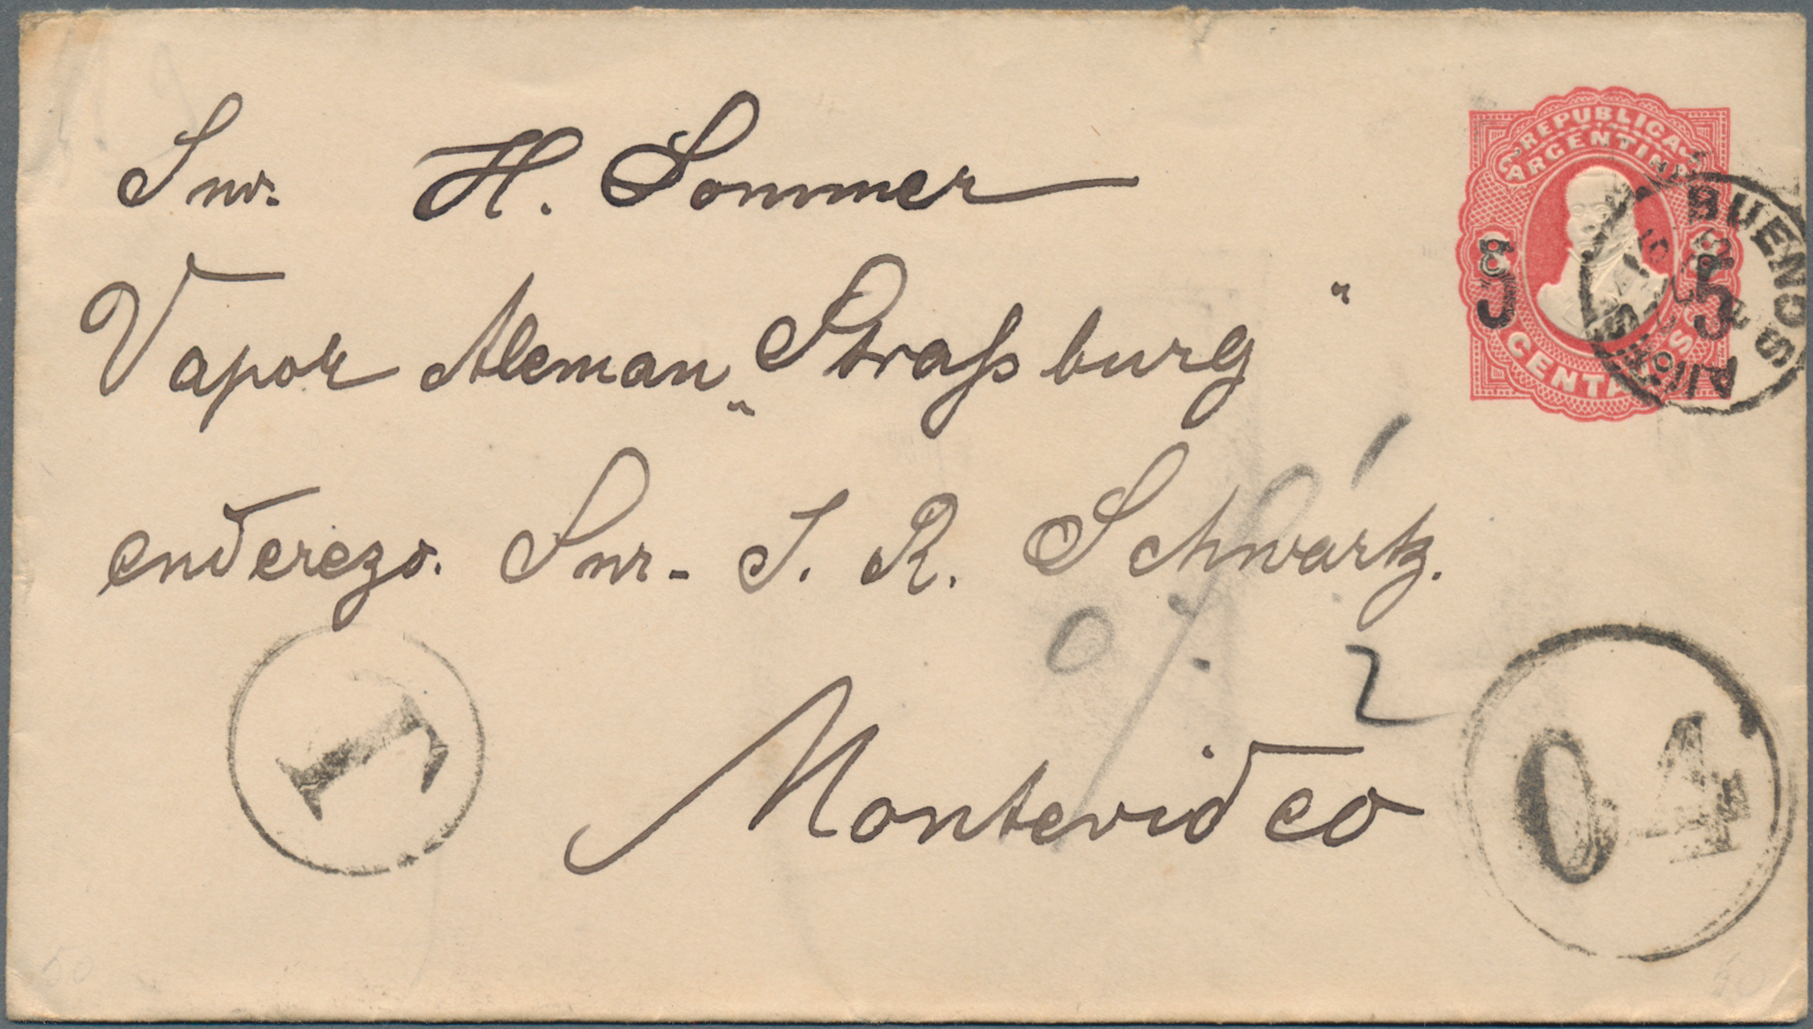 Snr. H. Sommer
Vapor Aleman „Straſsburg“
enderezo. Snr- I. R. Schwartz.
Montevideo
REPUBLICA
ARGENTINA
5 5
CENTAVOS
BUENOS AIRES
T
04
2
50